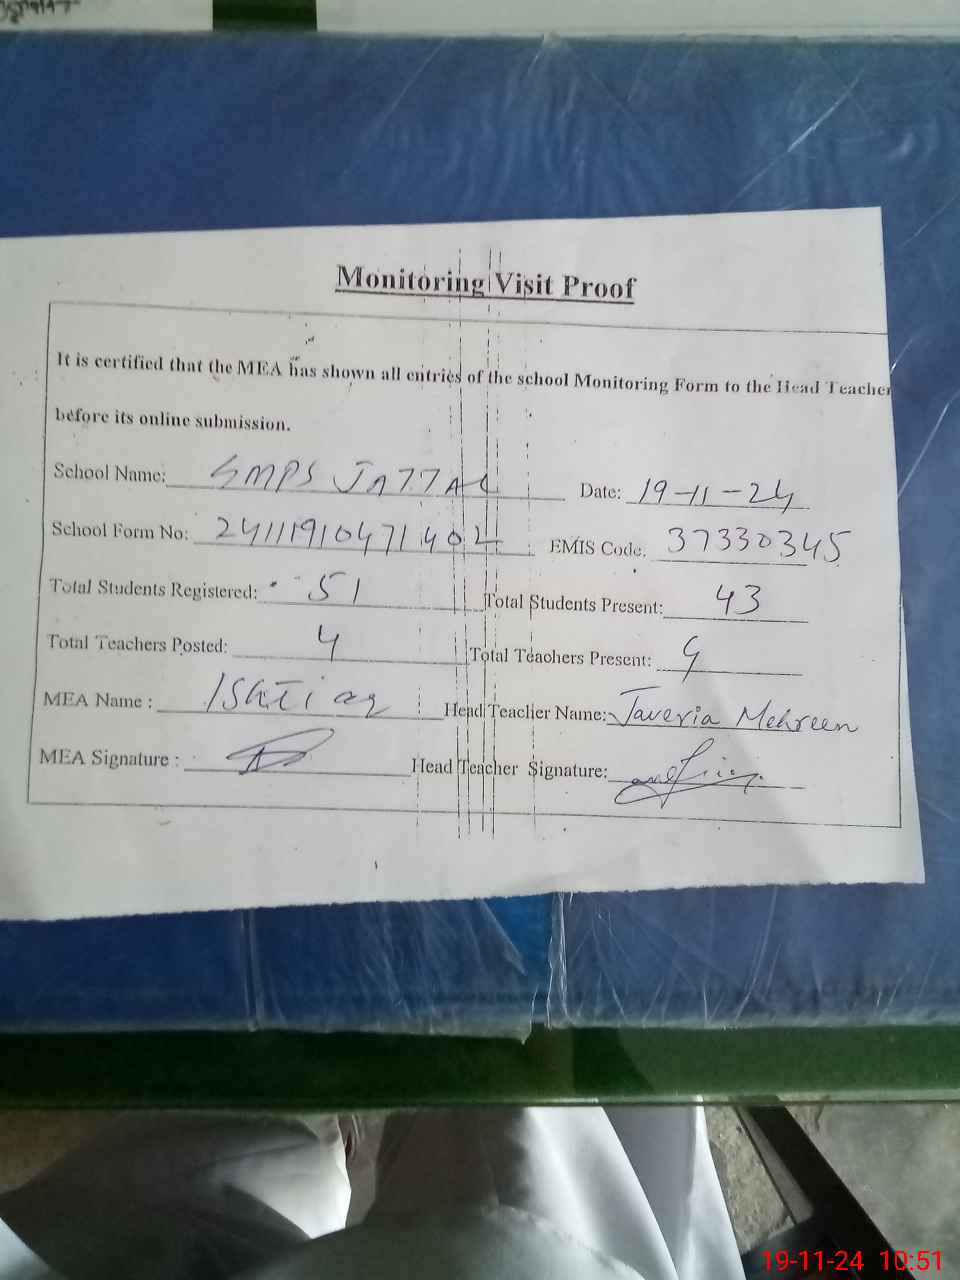 Monitoring Visit Proof
It is certified that the MEA has shown all entries of the school Monitoring Form to the Head Teacher
before its online submission.
School Name: GMPS JATTAL Date: 19-11-24
School Form No: 24111910471404 EMIS Code. 37330345
Total Students Registered: 51 Total Students Present: 43
Total Teachers Posted: 4 Total Teachers Present: 4
MEA Name : Ishtiaq Head Teacher Name: Javeria Mehreen
MEA Signature : Head Teacher Signature:
19-11-24 10:51